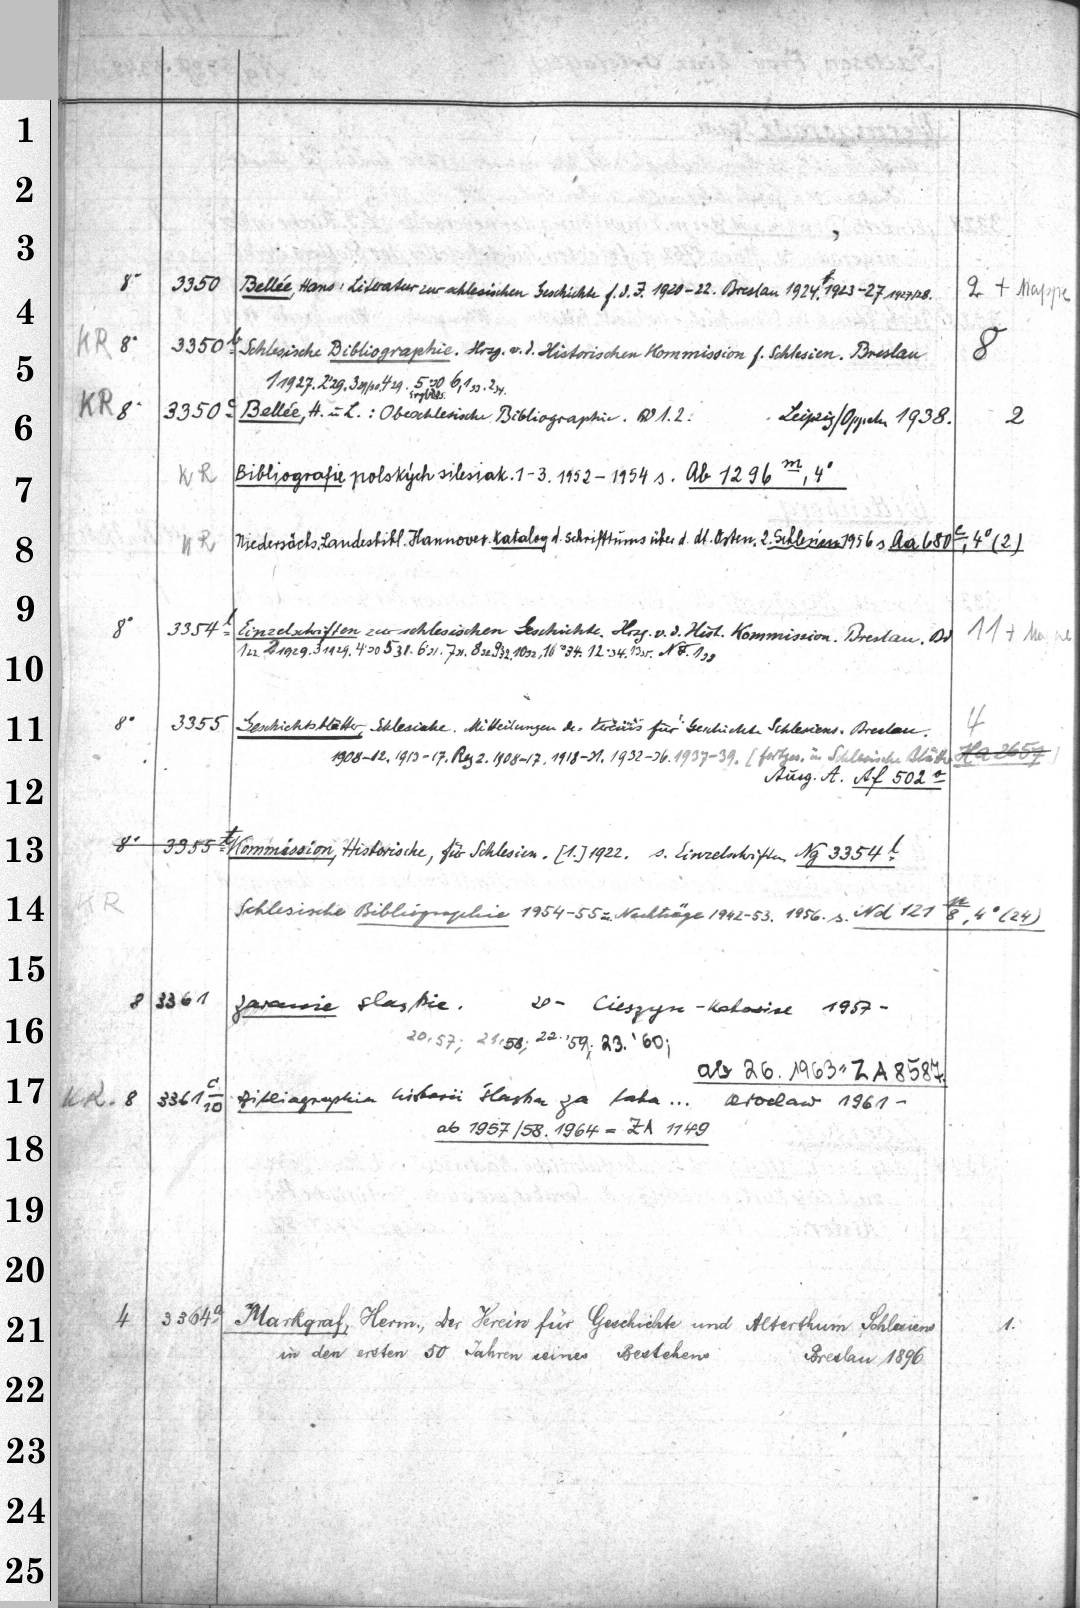 1
2
3
8° 3350 Bellée, Hans: Literatur zur schlesischen Geschichte f. d. J. 1920-22. Breslau 1924. 1923-27 1927/28. 2 + Mappe
4
KR 8° 3350 b Schlesische Bibliographie. Hrsg. v. d. Historischen Kommission f. Schlesien. Breslau 8
5
1 1927. 2 29. 3 29/30. 4 29. 5 30 6,1 33. 2 34.
KR 8° 3350 c Bellée, H. u. L.: Oberschlesische Bibliographie. Bd 1.2. Leipzig/Oppeln 1938. 2
6
KR Bibliografie polských silesiak. 1-3. 1952-1954 s. Ab 1296 m, 4°
7
KR Niedersächs. Landesbibl. Hannover. Katalog d. Schrifttums über d. dt. Osten. 2. Schlesien 1956 s Aa 680 c, 4° (2)
8
9
8° 3354 l Einzelschriften zur schlesischen Geschichte. Hrsg. v. d. Hist. Kommission. Breslau. Bd 11 + Mappe
1 22 2 1929. 3 1929. 4 30 5 31. 6 31. 7 31. 8 32 9 32. 10 32, 11 34. 12 34. 13 35. N.F. 1 39
10
11
8° 3355 Geschichtsblätter, Schlesische. Mitteilungen des Vereins für Geschichte Schlesiens. Breslau. 4
1908-12. 1913-17. Reg 2. 1908-17. 1918-31. 1932-36. 1937-39. [fortges. in Schlesische Blätter Ha 2657]
Ausg. A. Af 502 a
12
13
8° 3355 t Kommission, Historische, für Schlesien. [1.] 1922. s. Einzelschriften Ng 3354 l
14
KR Schlesische Bibliographie 1954-55 = Nachträge 1942-53. 1956. s. Nd 121 n/8, 4° (24)
15
8 3361 Zaranie Slaskie. 20- Cieszyn-Katowice 1957-
16
20.57; 21.58; 22.'59; 23.'60;
ab 26. 1963 = ZA 8587.
17
KR. 8 3361 c/10 Bibliographia historii Slaska za lata... Wroclaw 1961-
ab 1957/58. 1964 = ZA 1149
18
19
20
21
4 3364 a Markgraf, Herm., Der Verein für Geschichte und Alterthum Schlesiens 1.
in den ersten 50 Jahren seines Bestehens Breslau 1896
22
23
24
25